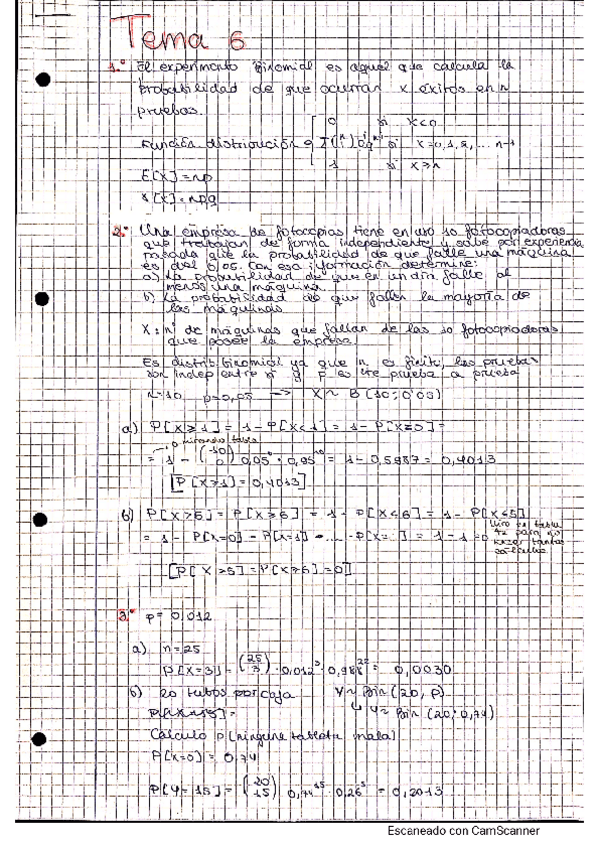 Tema 6
1.º El experimento Binomial es aquel que calcula la
probabilidad de que ocurran x éxitos en n
pruebas.
0 si x<0
Función distribución
si x=0,1,2,... n-1
1 si x≥n
E[X]=np
[X]=npq
2.º Una empresa de fotocopias tiene en uso 10 fotocopiadoras
que trabajan de forma independiente y sabe por experiencia
pasada que la probabilidad de que falle una máquina
es del 0,05. Con esa información determine:
a) La probabilidad de que en un día falle al
menos una máquina
b) La probabilidad de que fallen la mayoría de
las máquinas
X: nº de máquinas que fallan de las 10 fotocopiadoras
que posee la empresa.
Es distrib. binomial ya que n es finito, las pruebas
son indep entre sí y p es cte prueba a prueba
n=10 p=0,05 → X~ B (10; 0'05)
a) P[X≥1] = 1 - P[X<1] = 1 - P[X=0] =
o mirando tabla
= 1 - (10 0) 0,05⁰ · 0,95¹⁰ = 1 - 0,5987 = 0,4013
[P[X≥1] = 0,4013]
b) P[X>5] = P[X≥6] = 1 - P[X<6] = 1 - P[X≤5]
= 1 - P[X=0] - P[X=1] - ... - P[X=] = 1 - 1 = 0
Miro la tabla
para no
hacer tantos
cálculos
[P[X>5] = P[X≥6] = 0]
3.º p= 0,012
a) n=25
P[X=3] = (25 3) · 0,012³ · 0,988²² = 0,0030
b) 20 tubos por caja Y~ Bin (20, p)
↳ Y~ Bin (20; 0,74)
Calculo p (ninguna tableta mala)
P[X=0] = 0,74
P[Y=15] = (20 15) 0,74¹⁵ 0,26⁵ = 0,2013
Escaneado con CamScanner